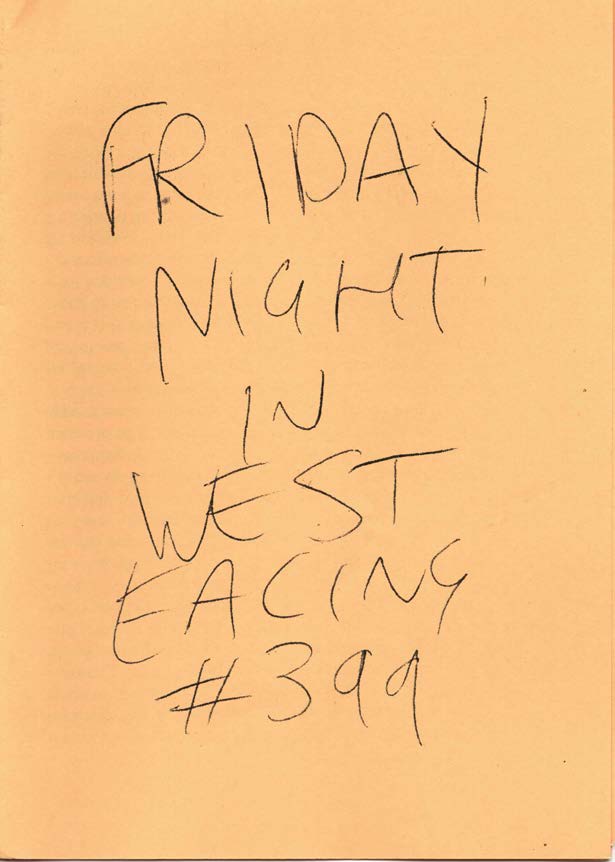 FRIDAY
NIGHT
IN
WEST
EALING
#399